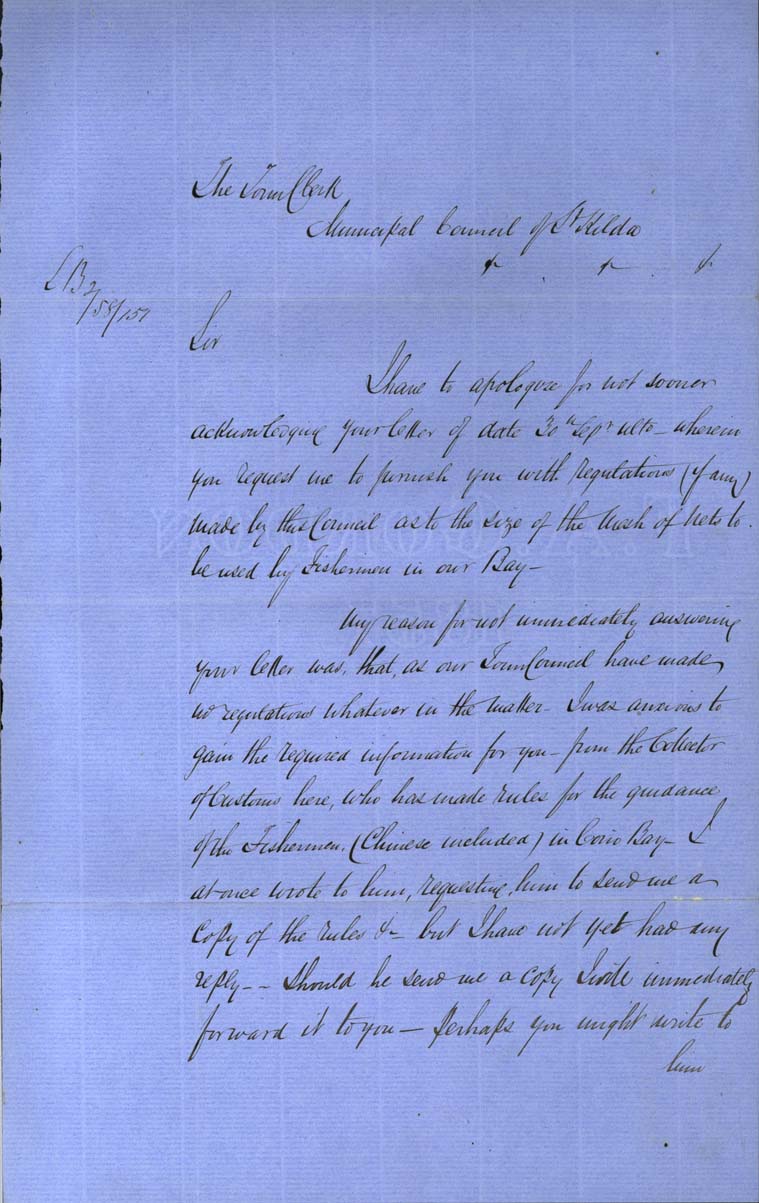 The Town Clerk
Municipal Council of St Kilda
&c &c &c
LB2
/58/151
Sir
I have to apologize for not sooner
acknowledging your letter of date 30th Sepr ulto - wherein
you request me to furnish you with regulations (if any)
made by this Council as to the size of the Mesh of Nets to
be used by Fishermen in our Bay -
My reason for not immediately answering
your letter was, that, as our Town Council have made
no regulations whatever in the matter - I was anxious to
gain the required information for you - from the Collector
of Customs here, who has made rules for the guidance
of the Fishermen. (Chinese included) in Corio Bay - I
at once wrote to him, requesting him to send me a
Copy of the rules &c - but I have not yet had any
reply - - Should he send me a copy I will immediately
forward it to you - Perhaps you might write to
him